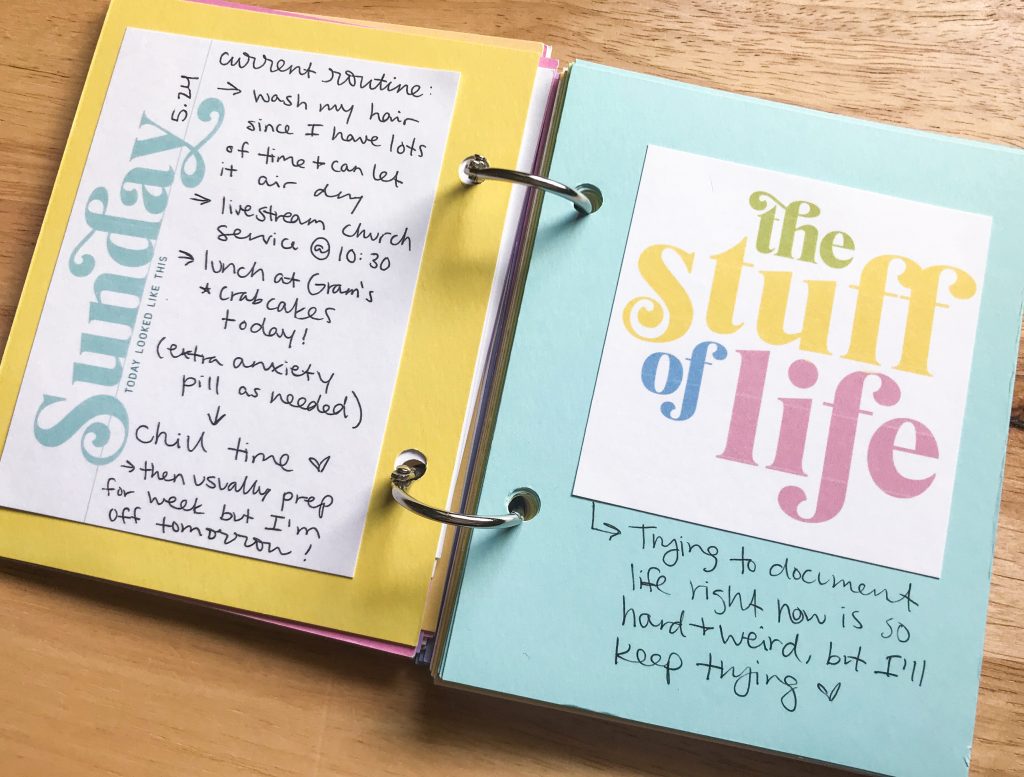 Sunday
TODAY LOOKED LIKE THIS
5.24
current routine:
→ wash my hair
since I have lots
of time + can let
it air dry
→ livestream church
service @ 10:30
→ lunch at Gram's
* crabcakes
today!
(extra anxiety
pill as needed)
↓
chill time ♡
→ then usually prep
for week but I'm
off tomorrow!
the
stuff
of life
↳ Trying to document
life right now is so
hard + weird, but I'll
keep trying ♡